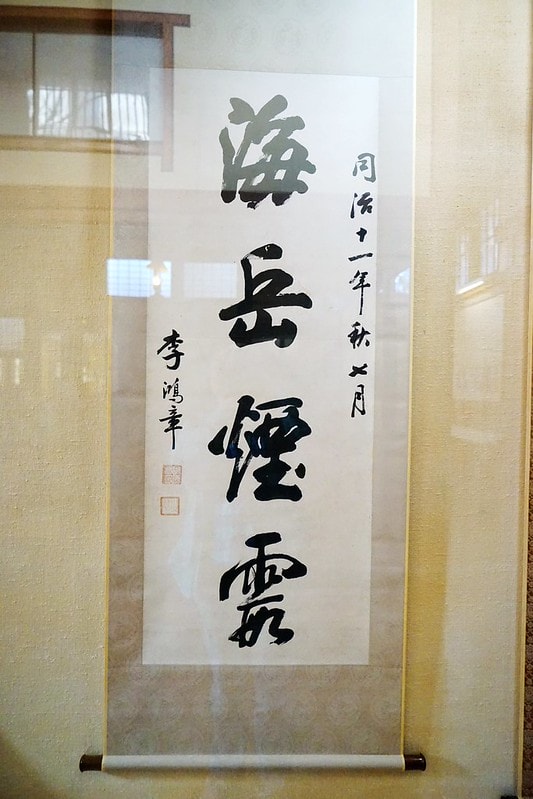 同治十一年秋七月
海岳煙霞
李鴻章